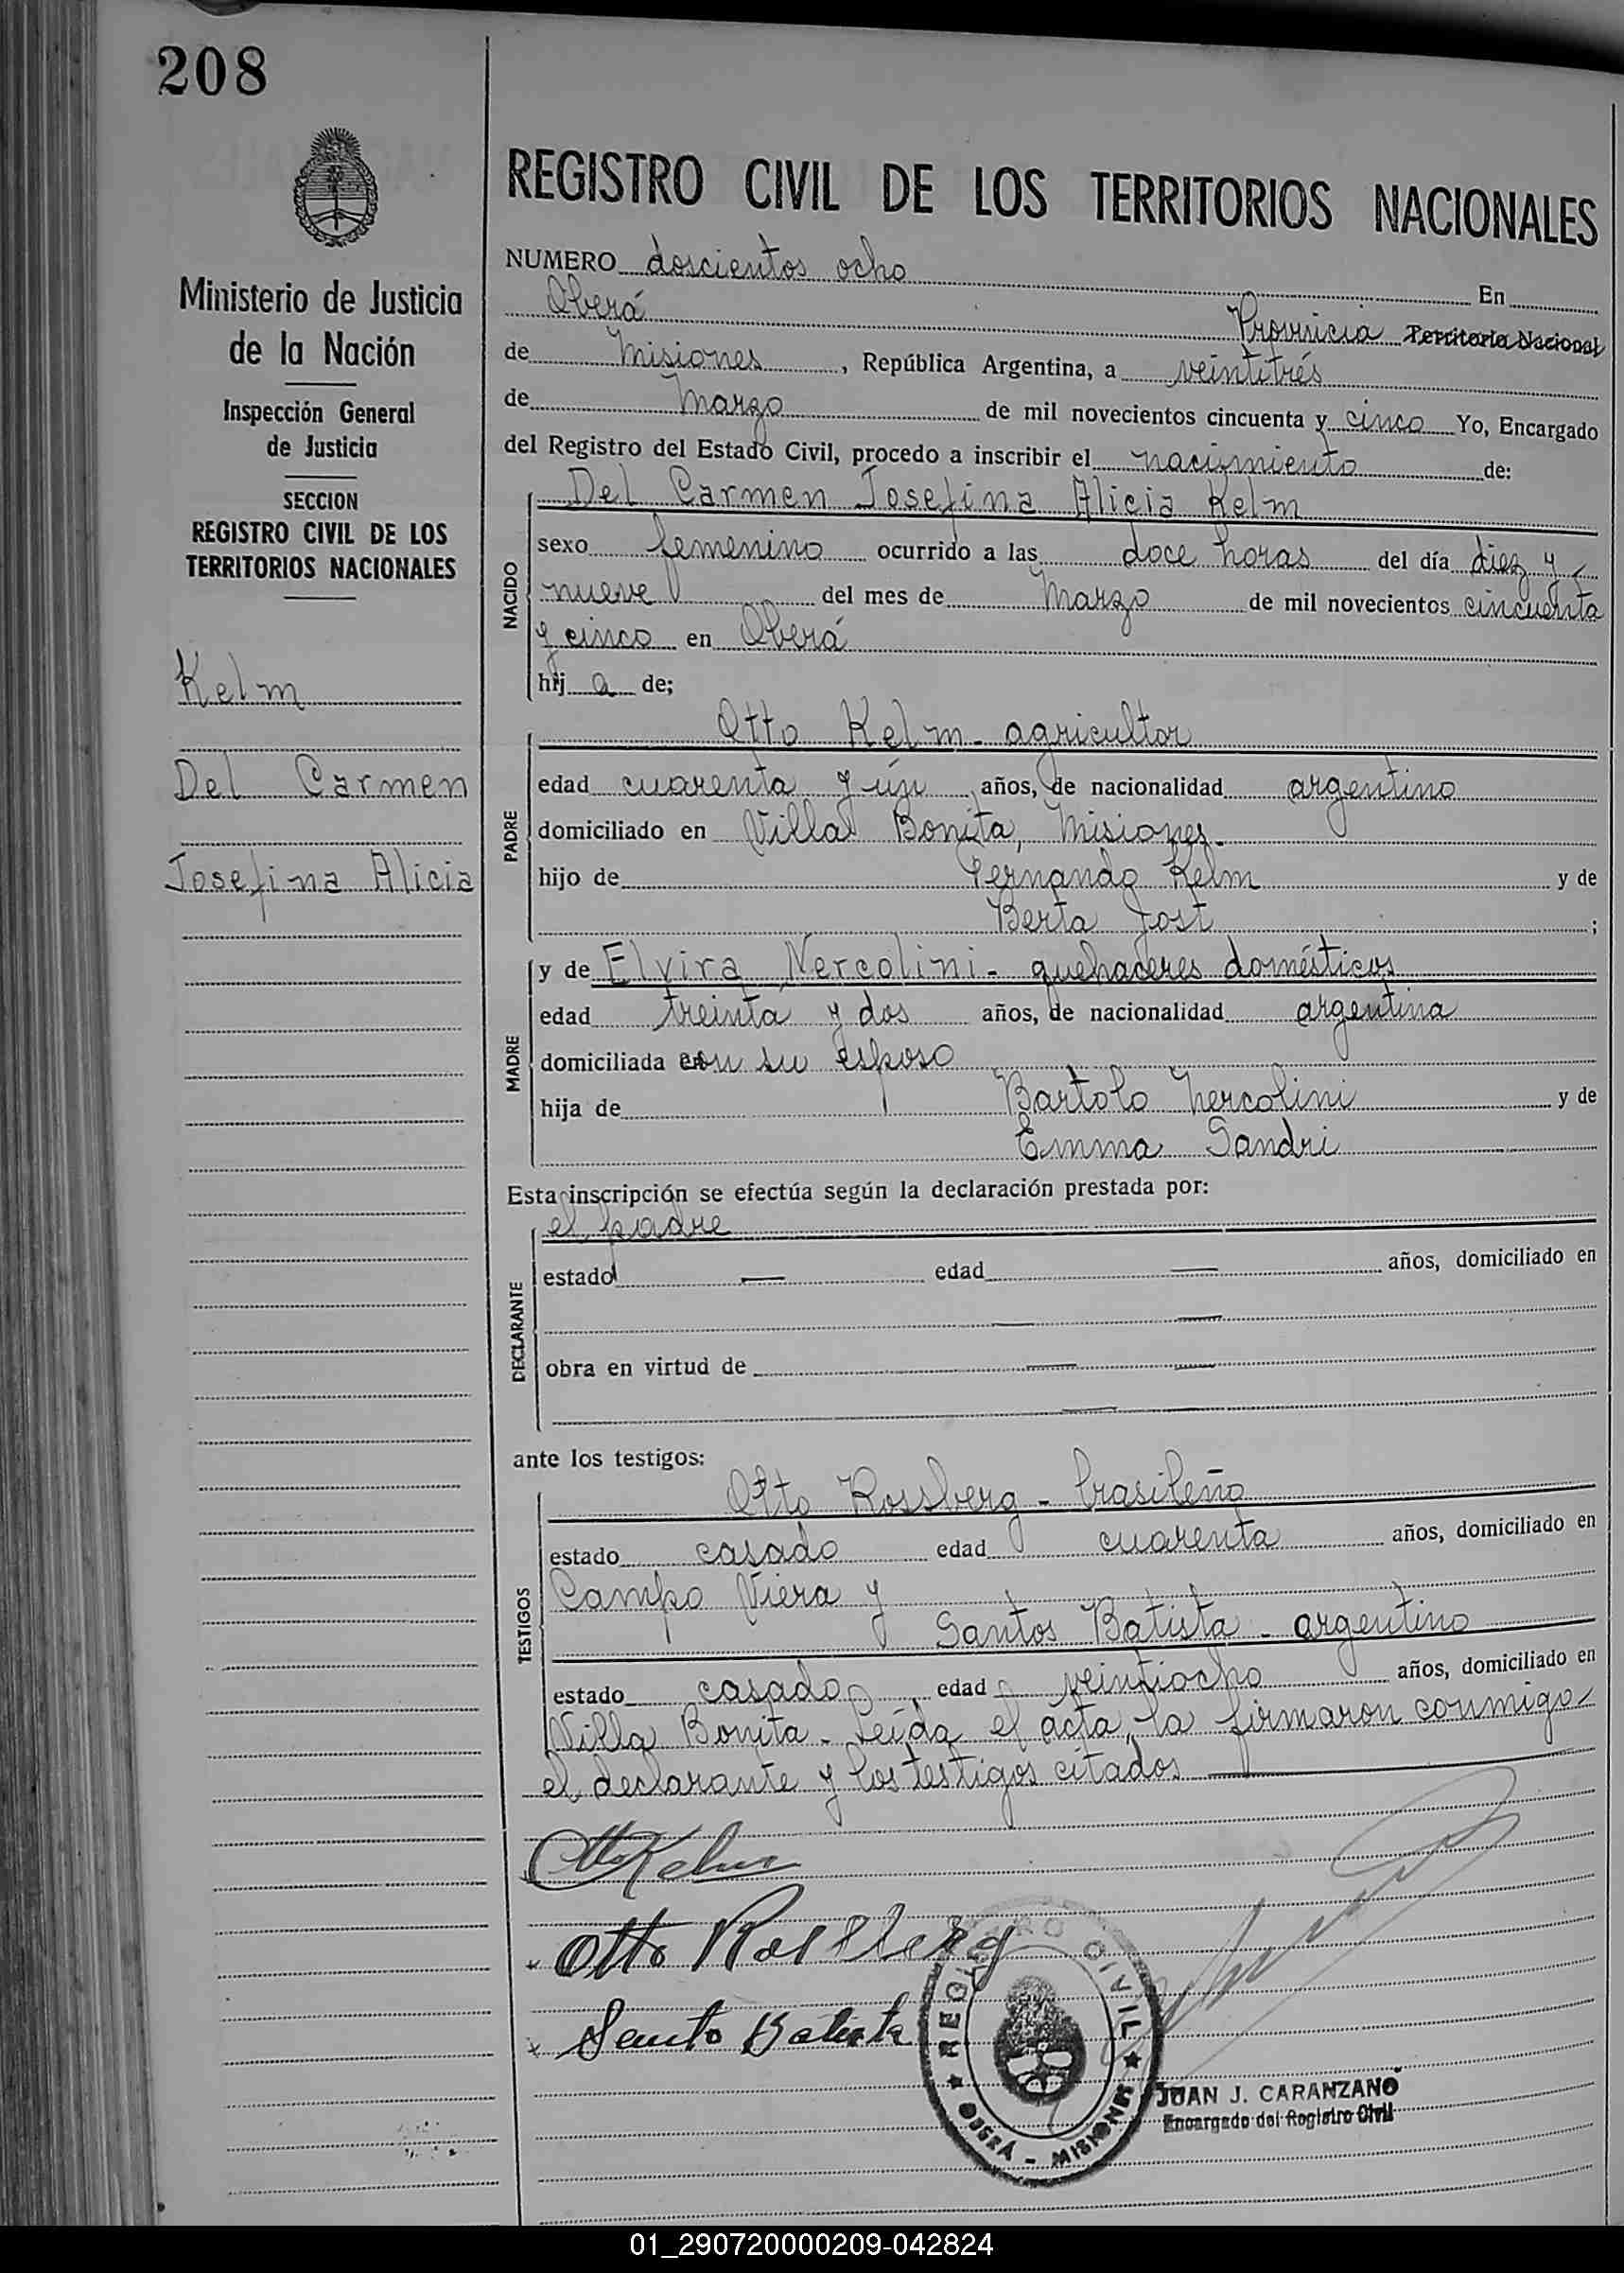 208
Ministerio de Justicia
de la Nación
Inspección General
de Justicia
SECCION
REGISTRO CIVIL DE LOS
TERRITORIOS NACIONALES
Kelm
Del Carmen
Josefina Alicia
REGISTRO CIVIL DE LOS TERRITORIOS NACIONALES
NUMERO doscientos ocho En
Oberá Provincia Territorio Nacional
de Misiones, República Argentina, a veintitrés
de Marzo de mil novecientos cincuenta y cinco Yo, Encargado
del Registro del Estado Civil, procedo a inscribir el nacimiento de:
NACIDO
Del Carmen Josefina Alicia Kelm
sexo femenino ocurrido a las doce horas del día diez y
nueve del mes de Marzo de mil novecientos cincuenta
y cinco en Oberá
hij a de;
PADRE
Otto Kelm - agricultor
edad cuarenta y ún años, de nacionalidad argentino
domiciliado en Villa Bonita, Misiones.
hijo de Fernando Kelm y de
Berta Jost ;
MADRE
y de Elvira Nercolini - quehaceres domésticos
edad treinta y dos años, de nacionalidad argentina
domiciliada con su esposo
hija de Bartolo Nercolini y de
Emma Sandri
Esta inscripción se efectúa según la declaración prestada por:
DECLARANTE
el padre
estado — edad — años, domiciliado en
— —
obra en virtud de — —
—
ante los testigos:
TESTIGOS
Otto Rossberg - brasileño
estado casado edad cuarenta años, domiciliado en
Campo Viera y
Santos Batista - argentino
estado casado, edad veintiocho años, domiciliado en
Villa Bonita - Leída el acta, la firmaron conmigo
el declarante y los testigos citados
Otto Kelm
x Otto Rossberg
x Santo Batista
REGISTRO CIVIL
OBERÁ - MISIONES
JUAN J. CARANZANO
Encargado del Registro Civil
01_290720000209-042824